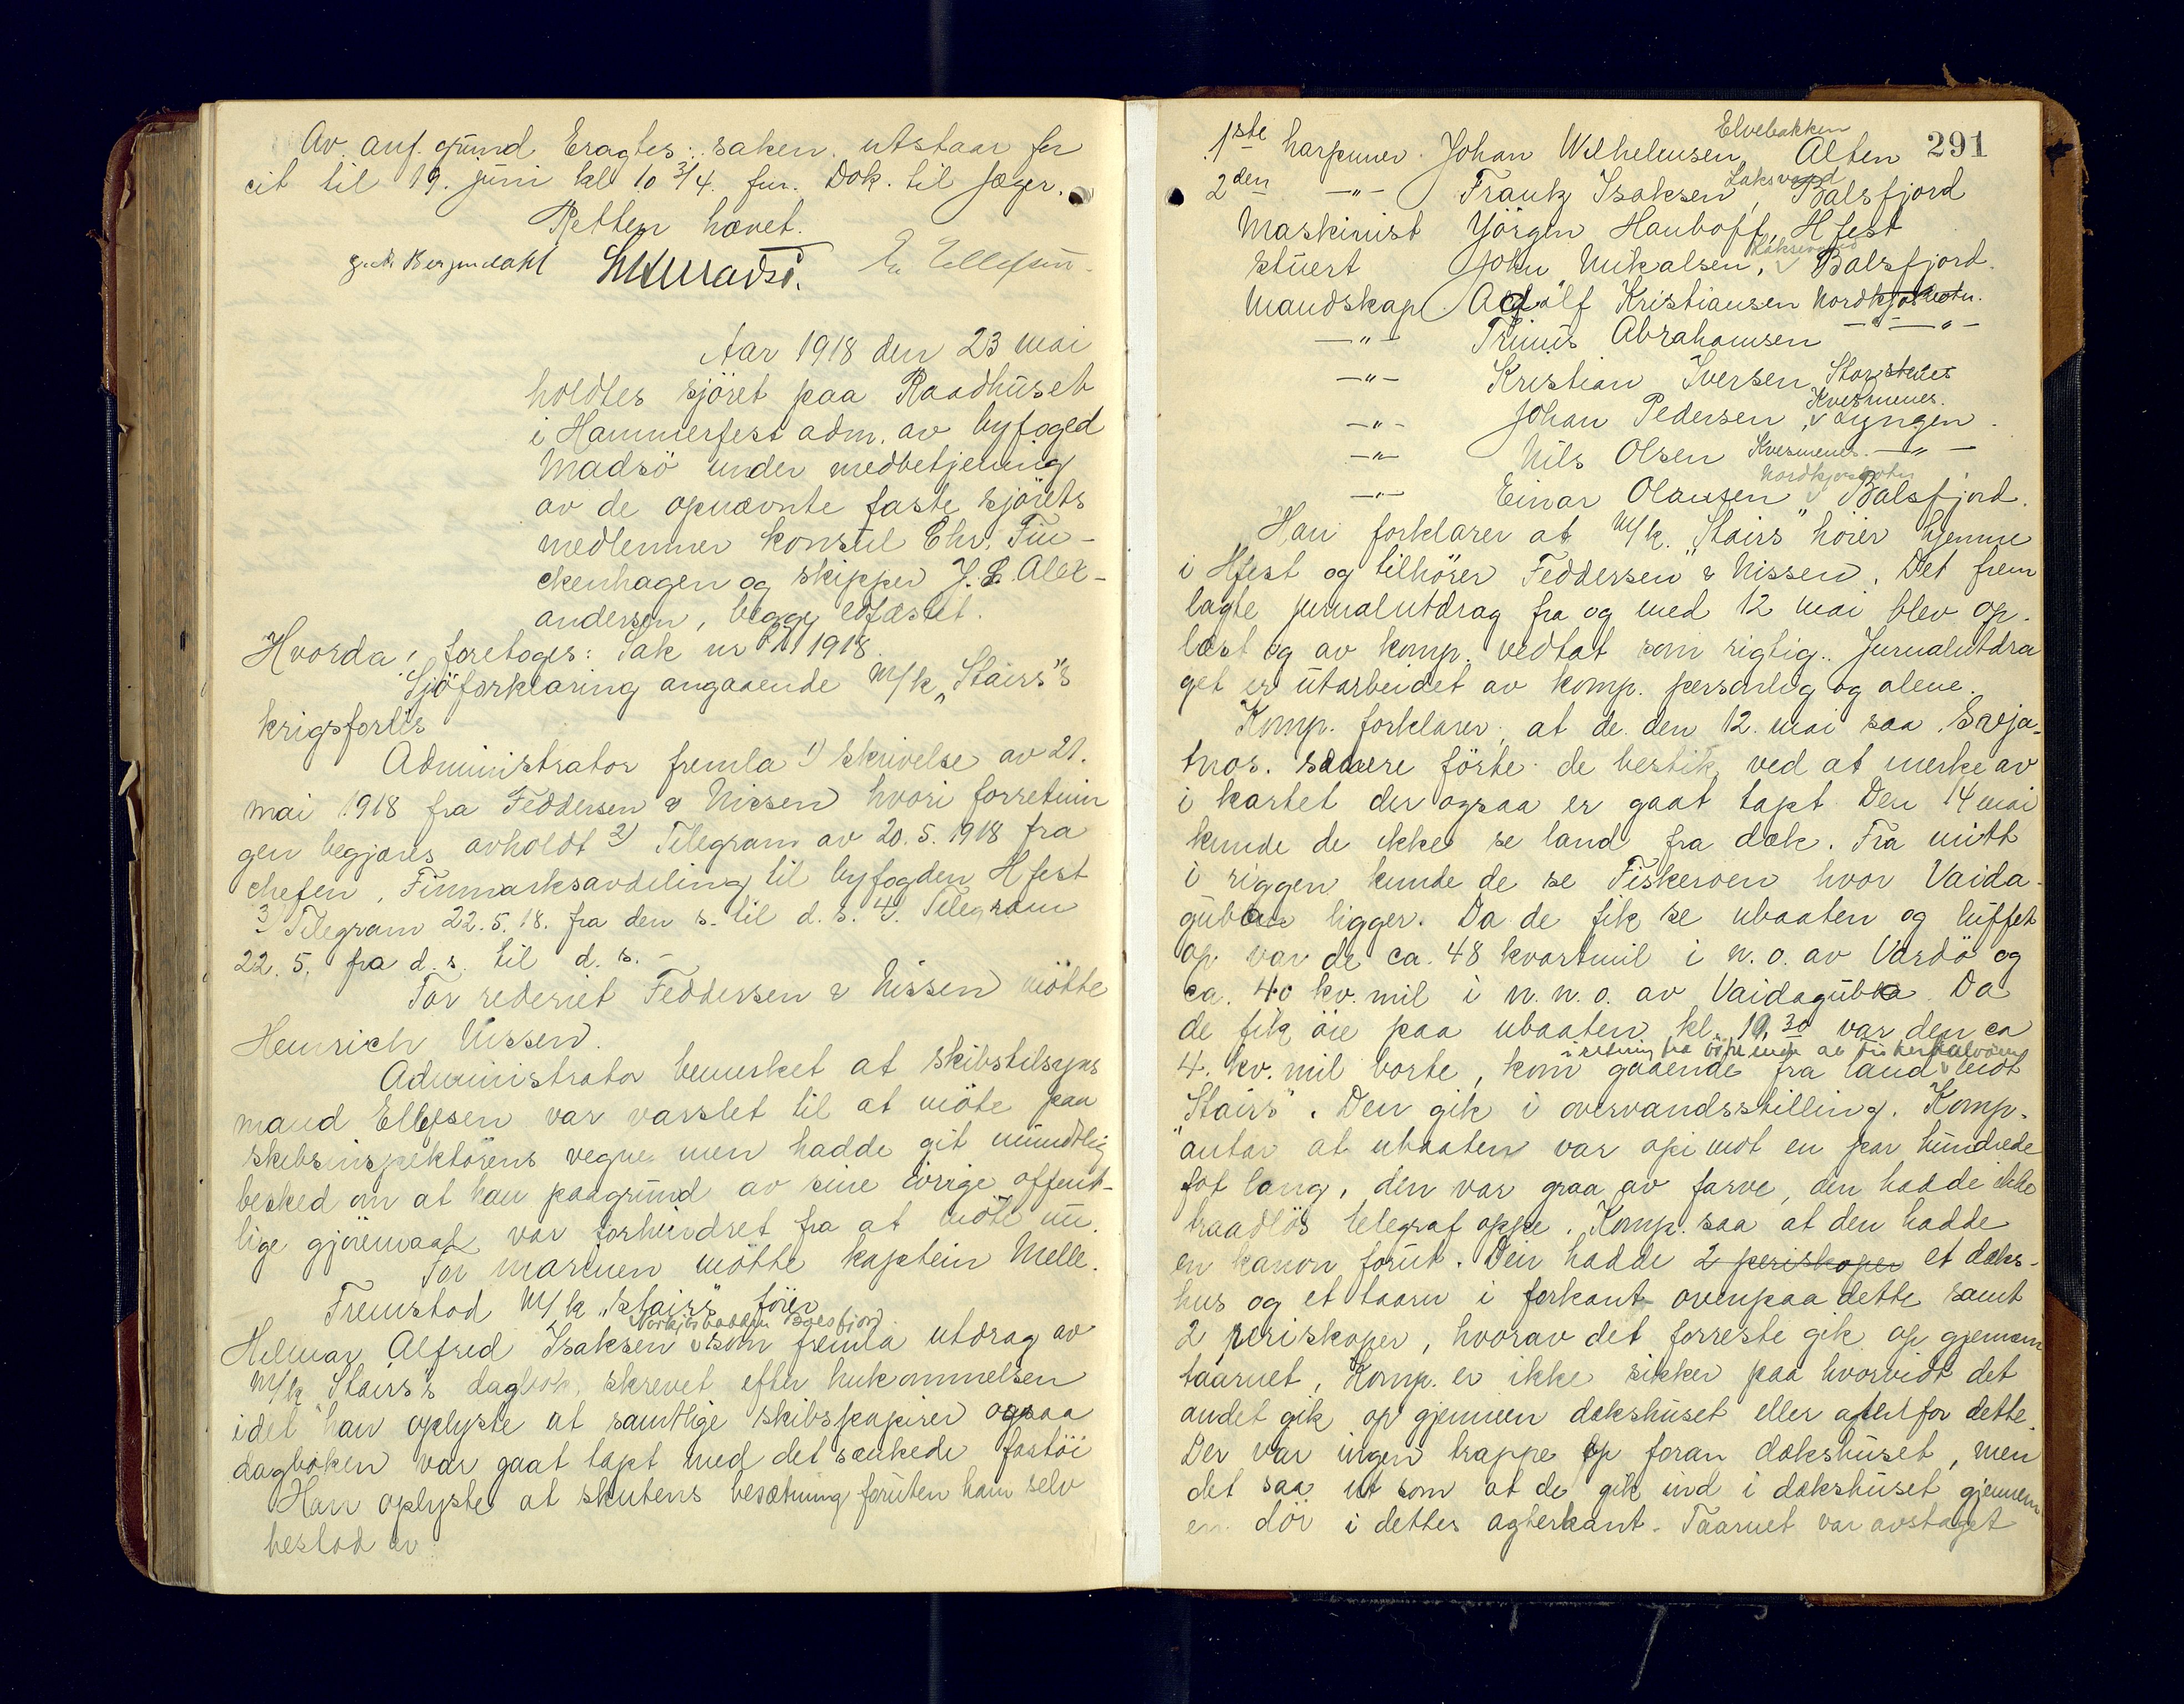 Av anf. grund Eragtes: saken utstaar for
eit til 19. juni kl 10 3/4. fm. Dok. til Jæger.
Retten hævet.
Bergendahl Madsö. E. Ellefsen
Aar 1918 den 23 mai
holdtes sjöret paa Raadhuset
i Hammerfest adm. av byfoged
Madsö under medbetjening
av de opnævnte faste sjörets
medlemmer konsul Chr. Fin-
ckenhagen og skipper J. L. Alex-
andersen, begge edfæstet.
Hvorda! foretoges: Sak nr 1918.
Sjöforklaring angaaende M/k „Stairs"s
krigsforlis
Administrator fremla 1) skrivelse av 21.
mai 1918 fra Feddersen & Nissen hvori forretnin
gen begjæres avholdt 2) Telegram av 20.5.1918 fra
chefen, Finmarksavdeling til byfogden Hfest
3) Telegram 22.5.18. fra den s. til d.s. 4. Telegram
22.5. fra d.s. til d.s. -
For rederiet Feddersen & Nissen mötte
Henrich Nissen.
Administrator bemerket at skibstilsyns
mand Ellefsen var varslet til at möte paa
skibsinspektörens vegne men hadde git mundtlig
besked om at han paagrund av sine övrige offent-
lige gjöremaal var forhindret fra at möte nu.
For marinen mötte kaptein Melle.
Fremstod M/k „Stairs" förer
Nordkjosbotten Balsfjord
Helmar Alfred Isaksen v som fremla utdrag av
M/k Stairs's dagbok, skrevet efter hukommelsen
idet han oplyste at samtlige skibspapirer ogsaa
dagboken var gaat tapt med det sænkede fartöi
Han oplyste at skutens besætning foruten ham selv
bestod av
291
Elvebakken
1ste harpuner. Johan Wilhelmsen, Alten
Laksvand
2den -"- Frantz Isaksen, Balsfjord
Maskinist Jörgen Hauboff, Hfest
Laksevand
Stuert John Mikalsen, v Balsfjord.
Mandskap Adolf Kristiansen Nordkjosbotn.
-"- Trinus Abrahamsen -"-"-
-"- Kristian Iversen, Storstenes
Kvesmenes.
-"- Johan Pedersen, v Lyngen.
-"- Nils Olsen Kvesmenes. -"-
Nordkjosbotn
-"- Einar Olausen v Balsfjord.
Han forklarer at M/k. „Stairs" hörer hjemme
i Hfest og tilhörer Feddersen & Nissen. Det frem
lagte jurnalutdrag fra og med 12 mai blev op-
læst og av komp. vedtat som rigtig. Jurnalutdra
get er utarbeidet av komp. personlig og alene.
Komp. forklarer, at de den 12. mai saa Svja-
tnos. Senere förte de bestik ved at merke av
i kartet der ogsaa er gaat tapt. Den 14 mai
kunde de ikke se land fra dæk. Fra midt
i riggen kunde de se Fiskeröen hvor Vaida-
guba ligger. Da de fik se ubaaten og luffet
op var de ca. 48 kvartmil i n.o. av Vardö og
ca. 40 kv. mil i n.n.o. av Vaidaguba. Da
de fik öie paa ubaaten kl. 10.30 var den ca
i retning fra östre ende av Fiskerhalvöen
4. kv. mil borte, kom gaaende fra land v mot
„Stairs". Den gik i overvandsstilling. Komp.
antar at ubaaten var opimot en par hundrede
fot lang, den var graa av farve, den hadde ikke
traadlös telegraf oppe. Komp. saa at den hadde
en kanon forut. Den hadde 2 periskoper et dæks-
hus og et taarn i forkant ovenpaa dette samt
2 periskoper, hvorav det forreste gik op gjennem
taarnet, Komp. er ikke sikker paa hvorvidt det
andet gik op gjennem dækshuset eller aktenfor dette.
Der var ingen trappe op foran dækshuset, men
det saa ut som at de gik ind i dækshuset gjennem
en dör i dettes agterkant. Taarnet var avstaget